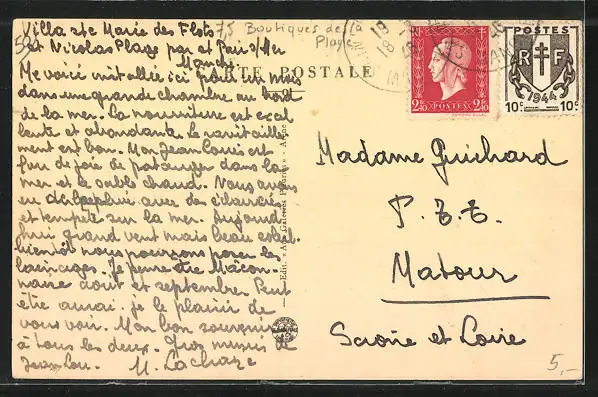 Villa Ste Marie des Flots
75 Boutiques de la Plage
St Nicolas Plage par et Pair s/Mer
Manche
CARTE POSTALE
Me voici installée ici pour un mois
dans une grande chambre au bord
de la mer. La nourriture est excel
lente et abondante le ravitaille
ment est bon. Mon Jean Louis est
fou de joie de patauger dans la
mer et le sable chaud. Nous avons
eu de la pluie avec des éclaircies
et tempête sur la mer. Aujourd
hui grand vent mais beau soleil.
bientôt nous pourrons poser les
lainages. Je pense être Mâcon
naise août et septembre. Peut
être aurai-je le plaisir de
vous voir. Mon bon souvenir
à tous les deux. Gros mimis de
Jean Lou. M. Lachaze
Madame Guichard
P. T. T.
Matour
Saône et Loire
POSTES
2f40
2f40
POSTES
R F
1944
10c 10c
5,-